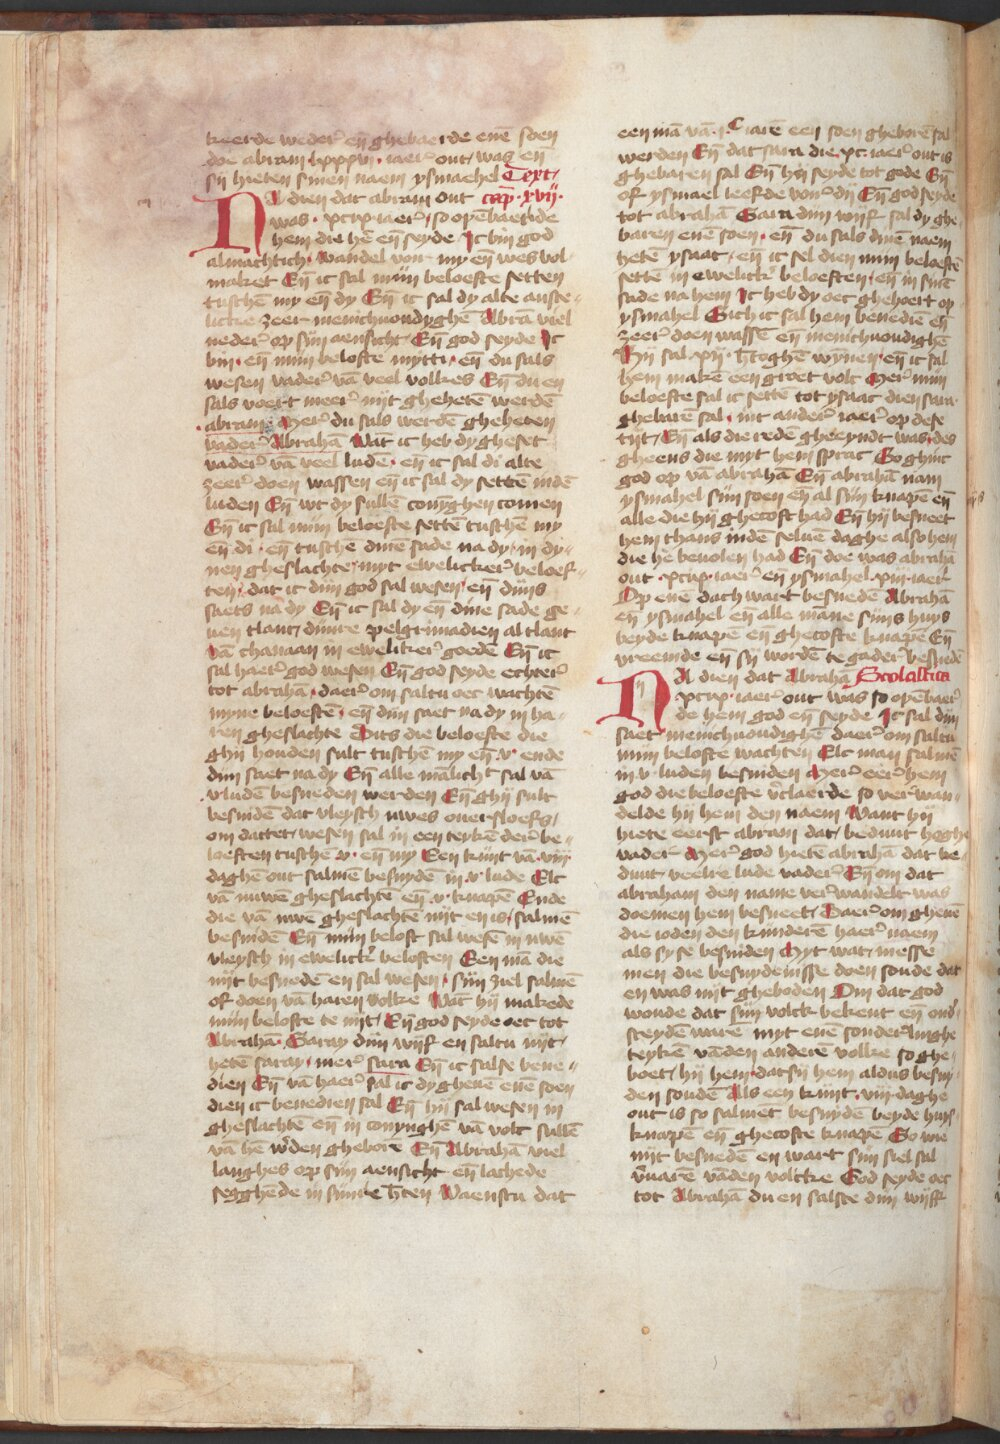 keerde weder̉ eñ ghebaerde enē soen
doe abram lxxxvi · iaer̉ out / was eñ
sij hieten sinen naem ysmahel Text /
NA dien dat abram out cap̄ · xvij ·
was · xcix · iaer̉ / so opēbaerde
hem die hē eñ seyde Ic bin god
almachtich · wandel vor̉ my eñ wes vol
maket Eñ ic sal mijn beloefte setten
tusschē my eñ dy Eñ ic sal dy alte anste
licke zeer menichuoudyghē Abrā viel
neder̉ op sijn aensicht · Eñ god seyde Ic
bin · eñ mijn belofte mytti · eñ du sals
wesen vader̉ vā veel volkes Eñ du en
sals voert meer̉ nijt ghehetē werdē
abram · Mer̉ du sals werdē gheheten
vader̉ Abrahā Wāt ic heb dy gheset
vader̉ vā veel ludē · eñ ic sal di alte
zeer̉ doen wassen eñ ic sal dy settē indē
luden Eñ wt dy sullē conyghen comen
Eñ ic sal mijn beloefte settē tusschē my
eñ di · eñ tusschē dinē sade na dy / in dy
nen gheslachte / myt ewelicker̉ beloef
ten / dat ic dijn god sal wesen / eñ dijns
saets na dy Eñ ic sal dy eñ dine sade ge
uen tlant / dinre pelgrimadien al tlant
vā chanaan in eweliker̉ goedē Eñ ic
sal haer̉ god wesen Eñ god seyde echter̉
tot abrahā · daer̉ om saltu oec wachtē
myne beloeftē · eñ dijn saet na dy in ha
ren gheslachte Dits die beloefte die
ghij houden sult tusschē my eñ · v · ende
dijn saet na dy Eñ alle mālicht sal vā
v luden besneden werden Eñ ghij sult
besnidē dat vleysch uwes ouer floefs /
om dattet / wesen sal in een teykē der̉ be
loeften tusschē · v · eñ my Een kijnt vā · viij
daghē out salmē besnydē in · v · lude Elc
vā nuwē gheslachtē eñ · v · knapē Ende
die vā uwē gheslachtē nijt en is / salmē
besnidē Eñ mijn beloft sal wesē in uwē
vleysch in ewelick̉ beloften Een mā die
nijt besnedē en sal wesen · sijn ziel salmē
of doen vā haren volke Wāt hij makede
mijn belofte te nijt / Eñ god seyde oec tot
Abrahā · Saray dijn wijf en saltu nijt /
hetē saray · mer̉ sara Eñ ic salse bene
dien Eñ vā haer̉ sal ic dy gheuē enē soen
dien ic benedien sal Eñ hij sal wesen in
gheslachte eñ in conynghē vā volt sullē
vā hē w̉den gheborē Eñ Abrahā viel
langhes op sijn aensicht · eñ lachede
segghēde in sijnre h̄ten Waenstu dat
een mā vā · i · C iarē een soen gheborē sal
werden Eñ dat sara die · xc · iaer̉ out is
ghebaren sal Eñ hij seyde tot gode Eñ
of ysmael leefde vor̉ dij Eñ god seyde
tot abrahā Sara dijn wijf sal dy ghe
baren enē soen · eñ du sals dinē naem
hetē ysaac / eñ ic sel dien mijn beloefte
settē in ewelick̉ beloeften / eñ in sinē
sade na hem Ic heb dy oec ghehoert op
ysmahel Sich ic sal hem benediē eñ
zeer̉ doen wassē eñ menichuoudighē
Hij sal · xij · h̄toghē wynen · eñ ic sal
hem makē een groet volc Mer̉ mijn
beloefte sal ic settē tot ysaac dien sara
ghebarē sal · int ander̉ iaer̉ op dese
tijt / Eñ als die redē gheeyndt was / des
gheens die myt hem sprac So ghinc
god op vā abrahā Eñ abrahā nam
ysmahel sijn soen eñ al sijn knapē eñ
alle die hij ghecoft had Eñ hij besneet
hem thans indē seluē daghe also hem
die hē beuolen had Eñ doe was abrahā
out · xcix · iaer̉ eñ ysmahel · xiij · iaer̉
Op enē dach wart besnedē Abrahā
eñ ysmahel eñ alle māne sijns huys
beyde knapē eñ ghecofte knapē Eñ
vreemde eñ sij wordē te gader̉ besnedē
NA dien dat Abrahā Scolastica
xcix · iaer̉ out was so opēbaer̉
de hem god eñ seyde Ic sal dijn
saet menichuoudighē daer̉ om saltu
mijn belofte wachten Elc man salmē
in · v · luden besniden Mer̉ eer̉ hem
god die beloefte v̉claerde so ver̉ wan
delde hij hem den naem Want hij
hiete eerst abram dat / beduut hoghe
vader Mer̉ god hietē abrahā dat be
duut / veelre lude vader̉ Eñ om dat
abraham den name ver̉ wandelt was
doemen hem besneet / Daer̉ om gheuē
die ioden den kinderē haer̉ naem
als sy se besniden Myt wat / messe
men die besnydenisse doen soude dat
en was nijt gheboden Om dat god
woude dat sijn volck bekent eñ ond̉
steyden warē myt enē sonder̉linghē
teykē vāden anderē volke so ghe
boet / hij hem · dat sij hem aldus besny
den soudē Als een kijnt · viij · daghe
out is so salmēt besnydē beyde huys
knapē eñ ghecofte knapē So wie
nijt besnedē en wart sijn siel sal
v̉uarē vāden volcke God seyde oec
tot Abrahā du en salste dijn wijff